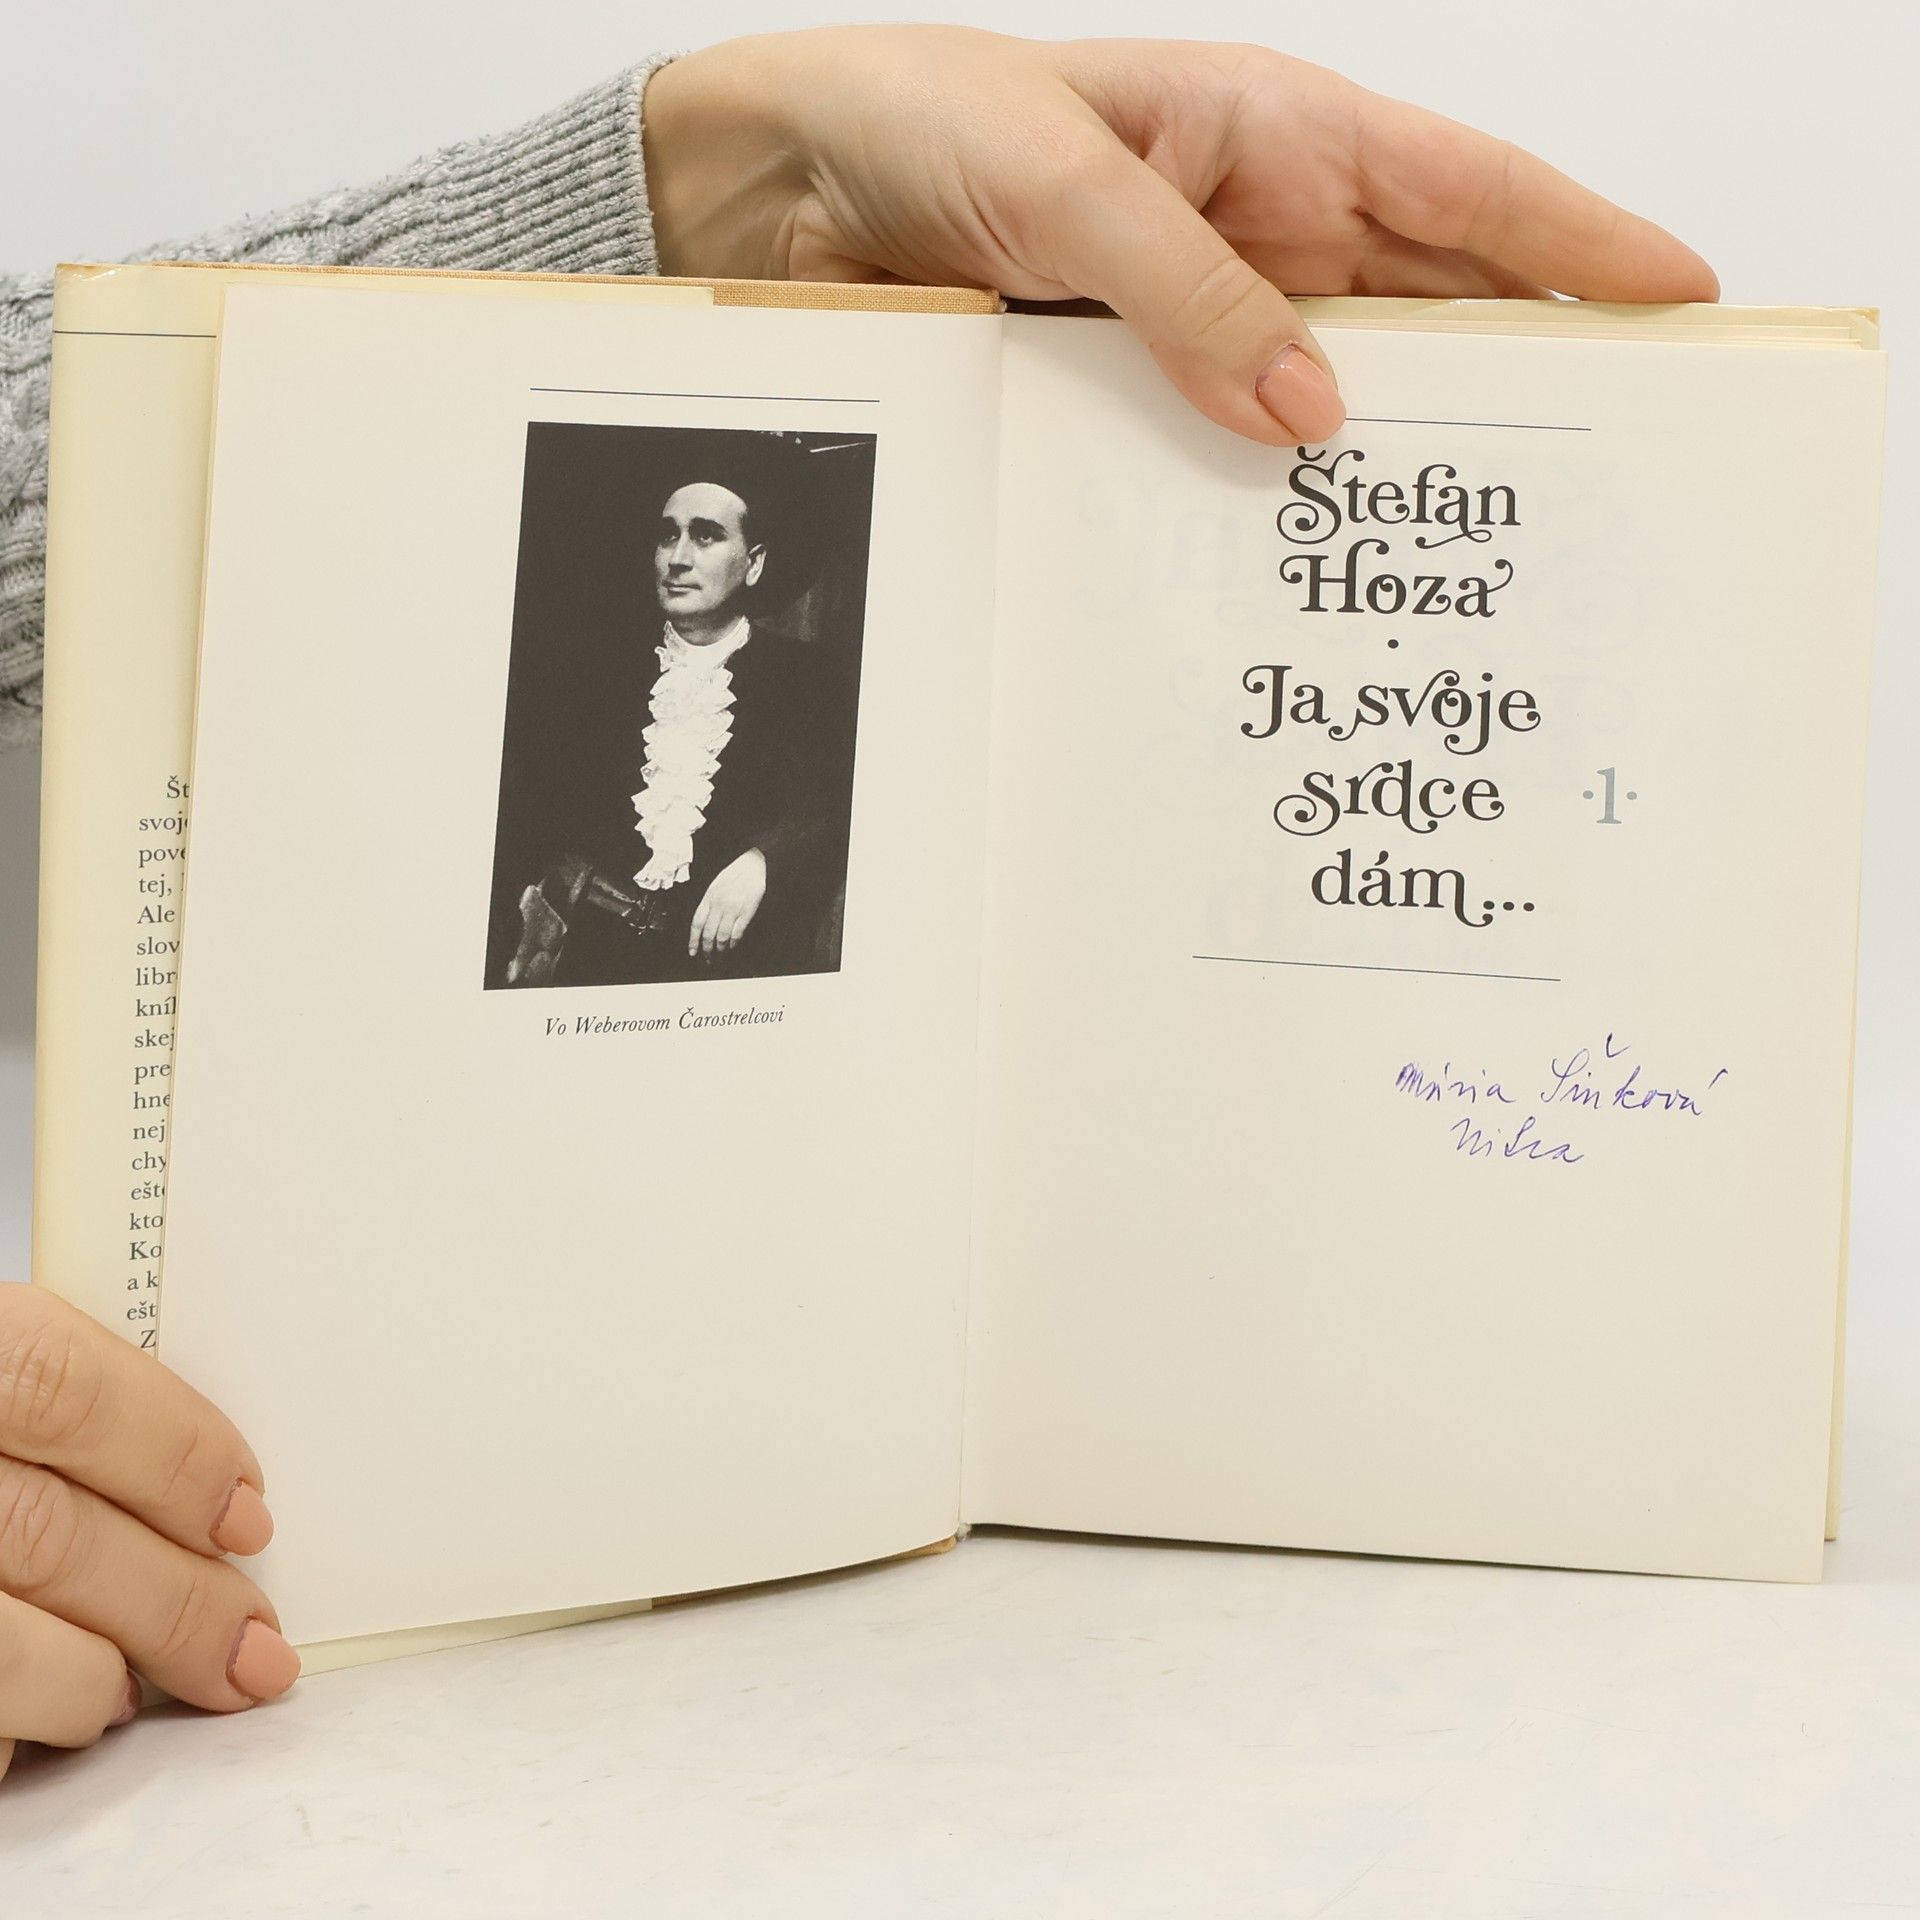 Št
svoj
pove
tej,
Ale
slov
libr
kníh
skej
pre
hne
nej
chy
ešte
kto
Ko
a k
ešt
Z
Vo Weberovom Čarostrelcovi
Štefan
Hoza
·
Ja svoje
srdce ·1·
dám...
Mária Šinková
Nitra